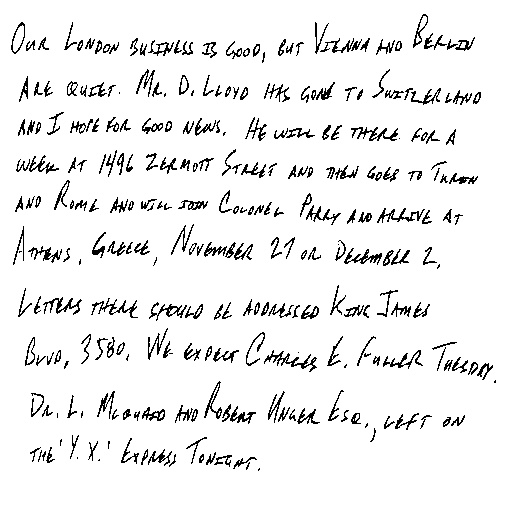 Our London business is good, but Vienna and Berlin
are quiet. Mr. D. Lloyd has gone to Switzerland
and I hope for good news. He will be there for a
week at 1496 Zermott Street and then goes to Turin
and Rome and will join Colonel Parry and arrive at
Athens, Greece, November 27 or December 2.
Letters there should be addressed King James
Blvd, 3580. We expect Charles E. Fuller Tuesday.
Dr. L. McQuaid and Robert Unger Esq., left on
the 'Y.X.' Express Tonight.